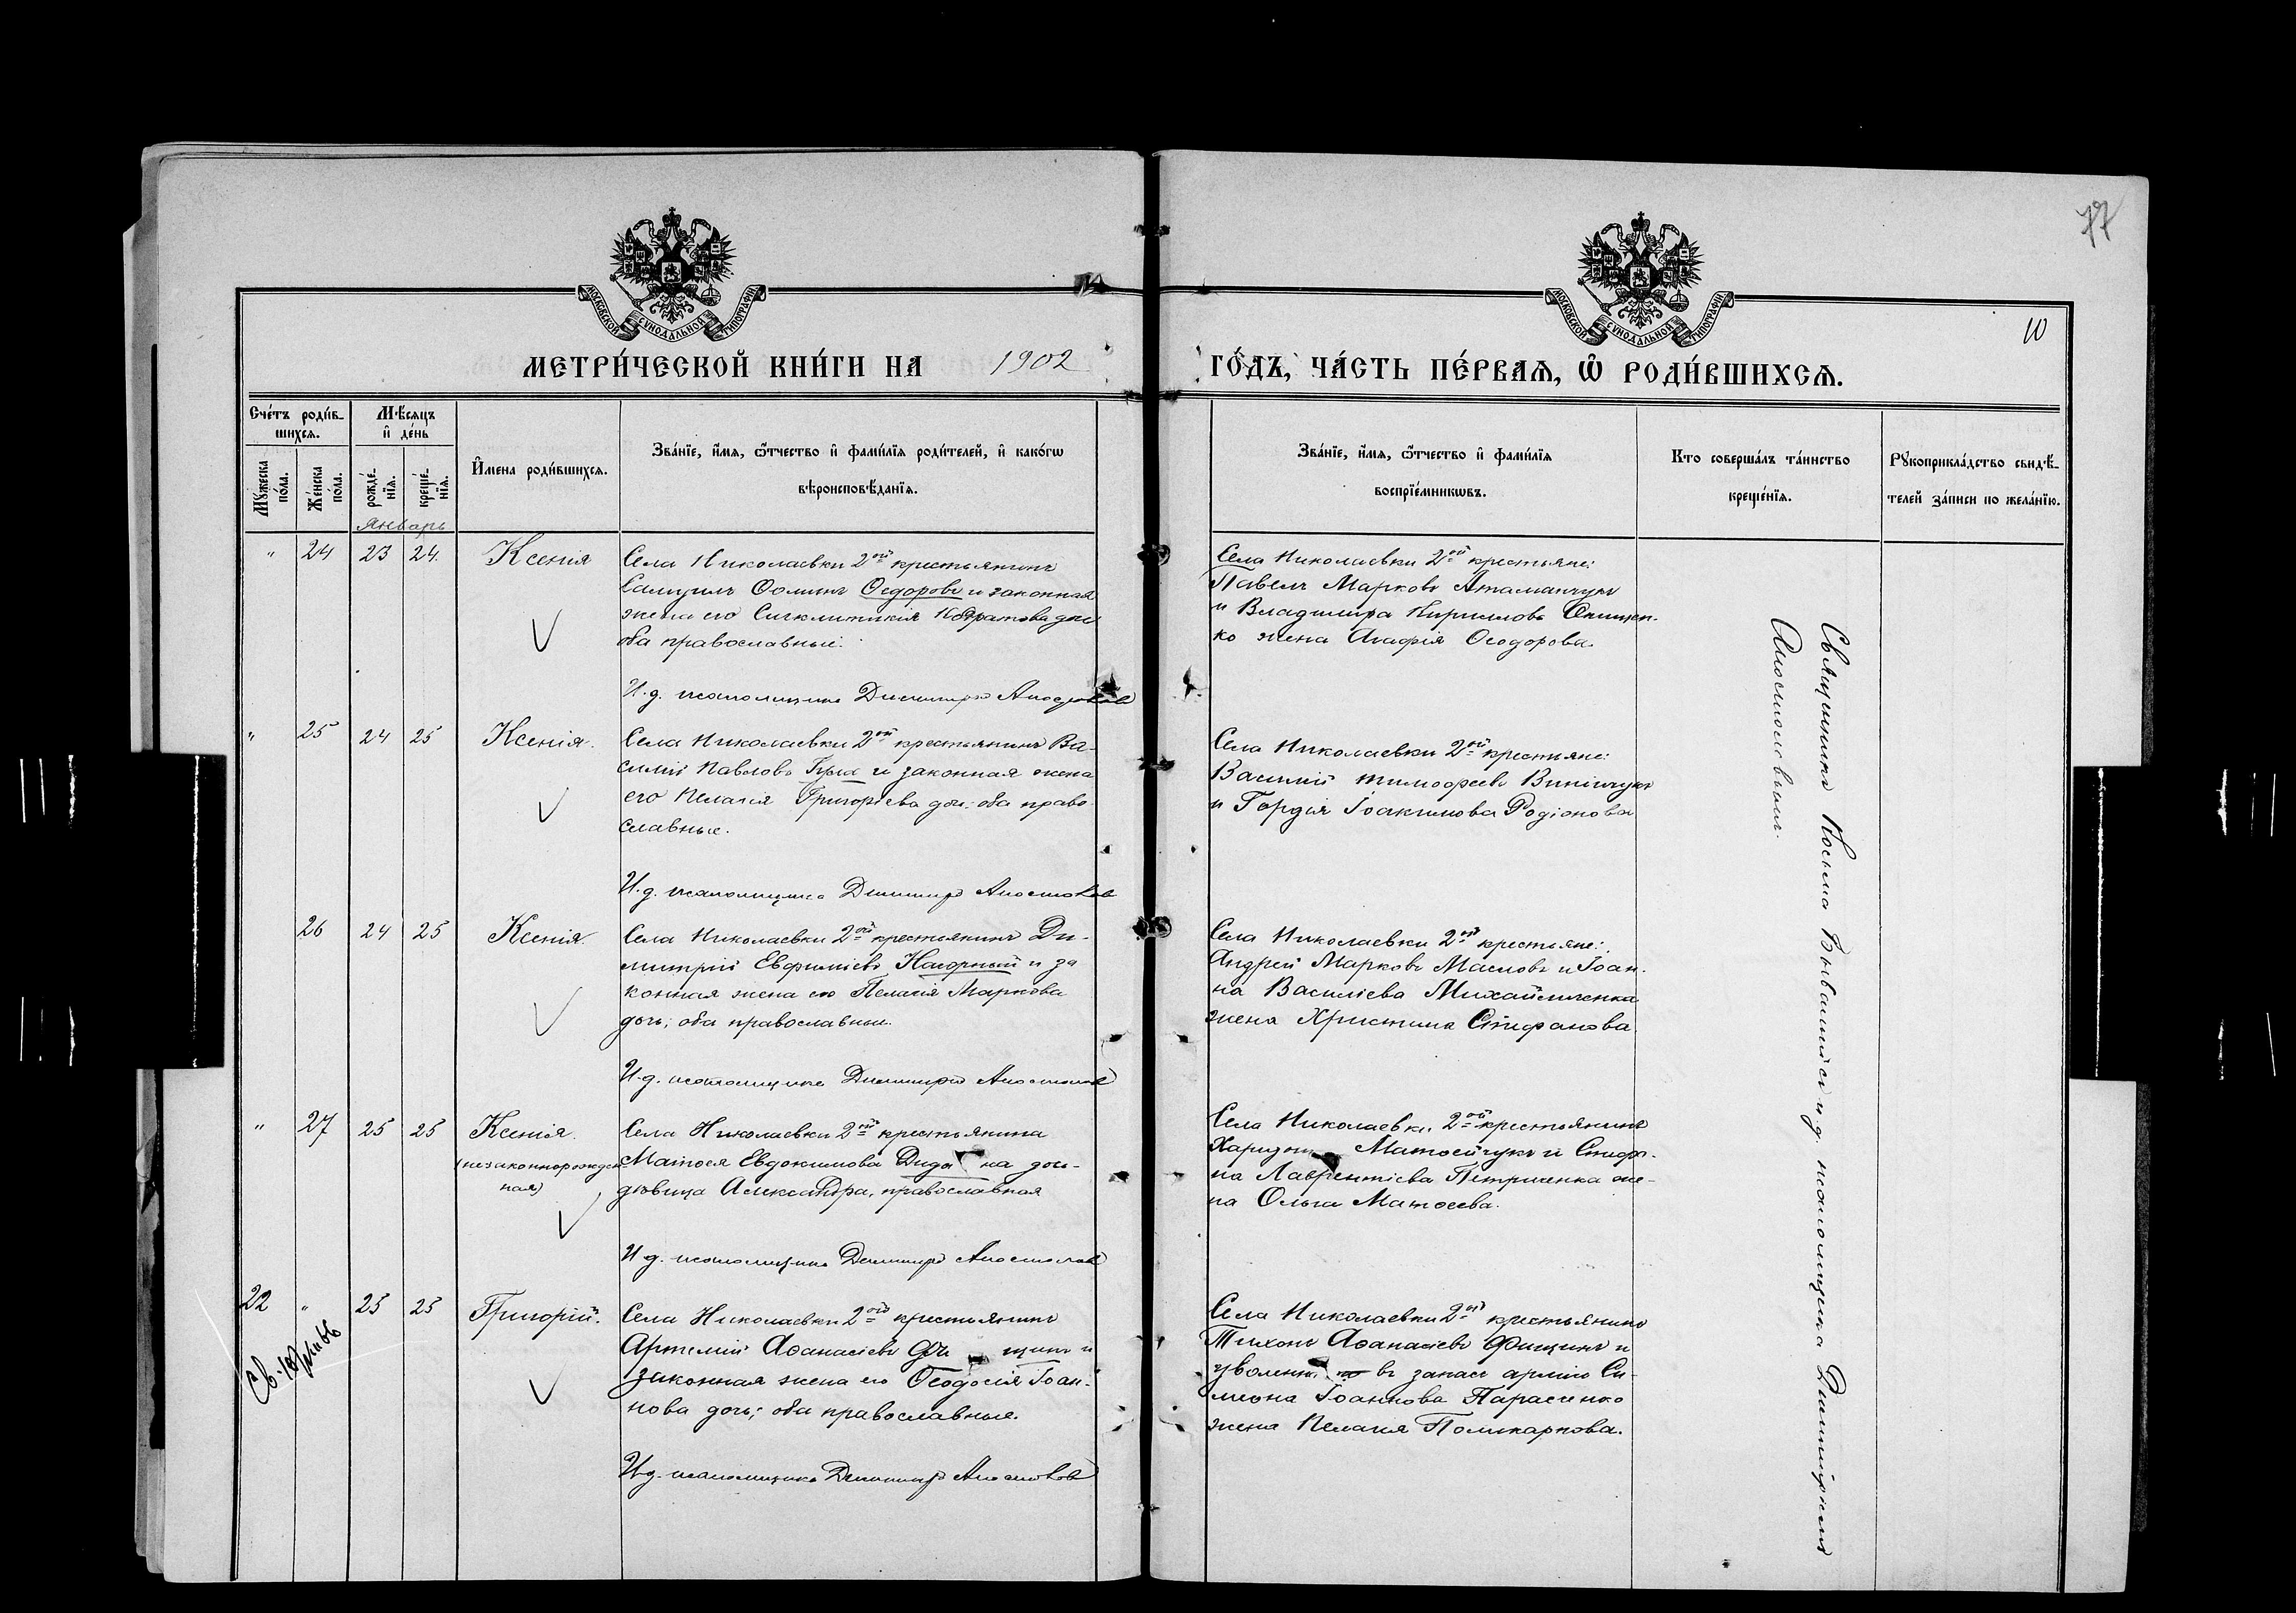 77
10
МОСКОВСКОЙ СѴНОДАЛЬНОЙ ТИПОГРАФІИ
МОСКОВСКОЙ СѴНОДАЛЬНОЙ ТИПОГРАФІИ
МЕТРИ́ЧЕСКОЙ КНИ́ГИ НА 1902 ГО́ДЪ, ЧА́СТЬ ПЕ́РВАѦ, Ѽ РОДИ́ВШИХСѦ.
Сче́тъ роди́в-
шихсѧ.
Мꙋ́жеска по́ла.
Же́нска по́ла.
Мѣ́сѧцъ
и҆ де́нь
рожде́-
нїѧ.
креще́-
нїѧ.
Январь
И҆мена роди́вшихсѧ.
Зва́нїе, и҆́мѧ, ѻ҆́тчество и҆ фами́лїѧ роди́телей, и҆ како́гѡ
вѣроисповѣ́данїѧ.
Зва́нїе, и҆́мѧ, ѻ҆́тчество и҆ фами́лїѧ
воспрїе́мникѡвъ.
Кто соверша́лъ та́инство
креще́нїѧ.
Рꙋкоприкла́дство свидѣ́-
телей за́писи по жела́нїю.
" 24 23 24. Ксенія
Села Николаевки 2ой крестьянинъ
Самуилъ Ѳоминъ Ѳедоровъ и законная
жена его Сигклитикія дочь
оба православные.
И. д. псаломщика Димитрій Апостоловъ
Села Николаевки 2ой крестьяне:
Павелъ Марковъ Атаманчукъ
и Владимира Кириллова Онищен-
ко жена Агафія Ѳеодорова.
" 25 24 25 Ксенія.
Села Николаевки 2ой крестьянинъ Ва-
силій Павловъ и законная жена
его Пелагія Григоріева дочь; оба право-
славные.
И. д. псаломщика Димитрій Апостоловъ
Села Николаевки 2ой крестьяне:
Василій Тимоѳеевъ Виничукъ
и Гордія Іоакимова Родіонова
26 24 25 Ксенія.
Села Николаевки 2ой крестьянинъ Ди-
митрій Евфиміевъ Нагорный и за
конная жена его Пелагія Маркова
дочь; оба православные.
И. д. псаломщика Димитрій Апостоловъ
Села Николаевки 2ой крестьяне:
Андрей Марковъ Масловъ и Іоан-
на Василіева Михайличенка
жена Христина Стефанова.
" 27 25 25 Ксенія.
(незаконнорожден
ная)
Села Николаевки 2ой крестьянина
Матѳея Евдокимова на дочь-
дѣвица Александра, православная
И. д. псаломщика Димитрій Апостоловъ
Села Николаевки 2ой крестьянинъ
Матвейчукъ и Стефа-
на Лаврентіева Петриченка же-
на Ольга Матѳеева.
22 " 25 25 Григорій.
Села Николаевки 2ой крестьянинъ
Артемій Аѳанасіевъ и
законная жена его Ѳеодосія Іоан-
нова дочь; оба православные.
И. д. псаломщика Димитрій Апостоловъ
Села Николаевки 2ой крестьянинъ
Тихонъ Аѳанасіевъ Фищинъ и
въ запасъ арміи Си-
меона Іоаннова Парасченко
жена Пелагія Поликарпова.
Священникъ Косма и. д. псаломщика Димитріемъ
Апостоловымъ.